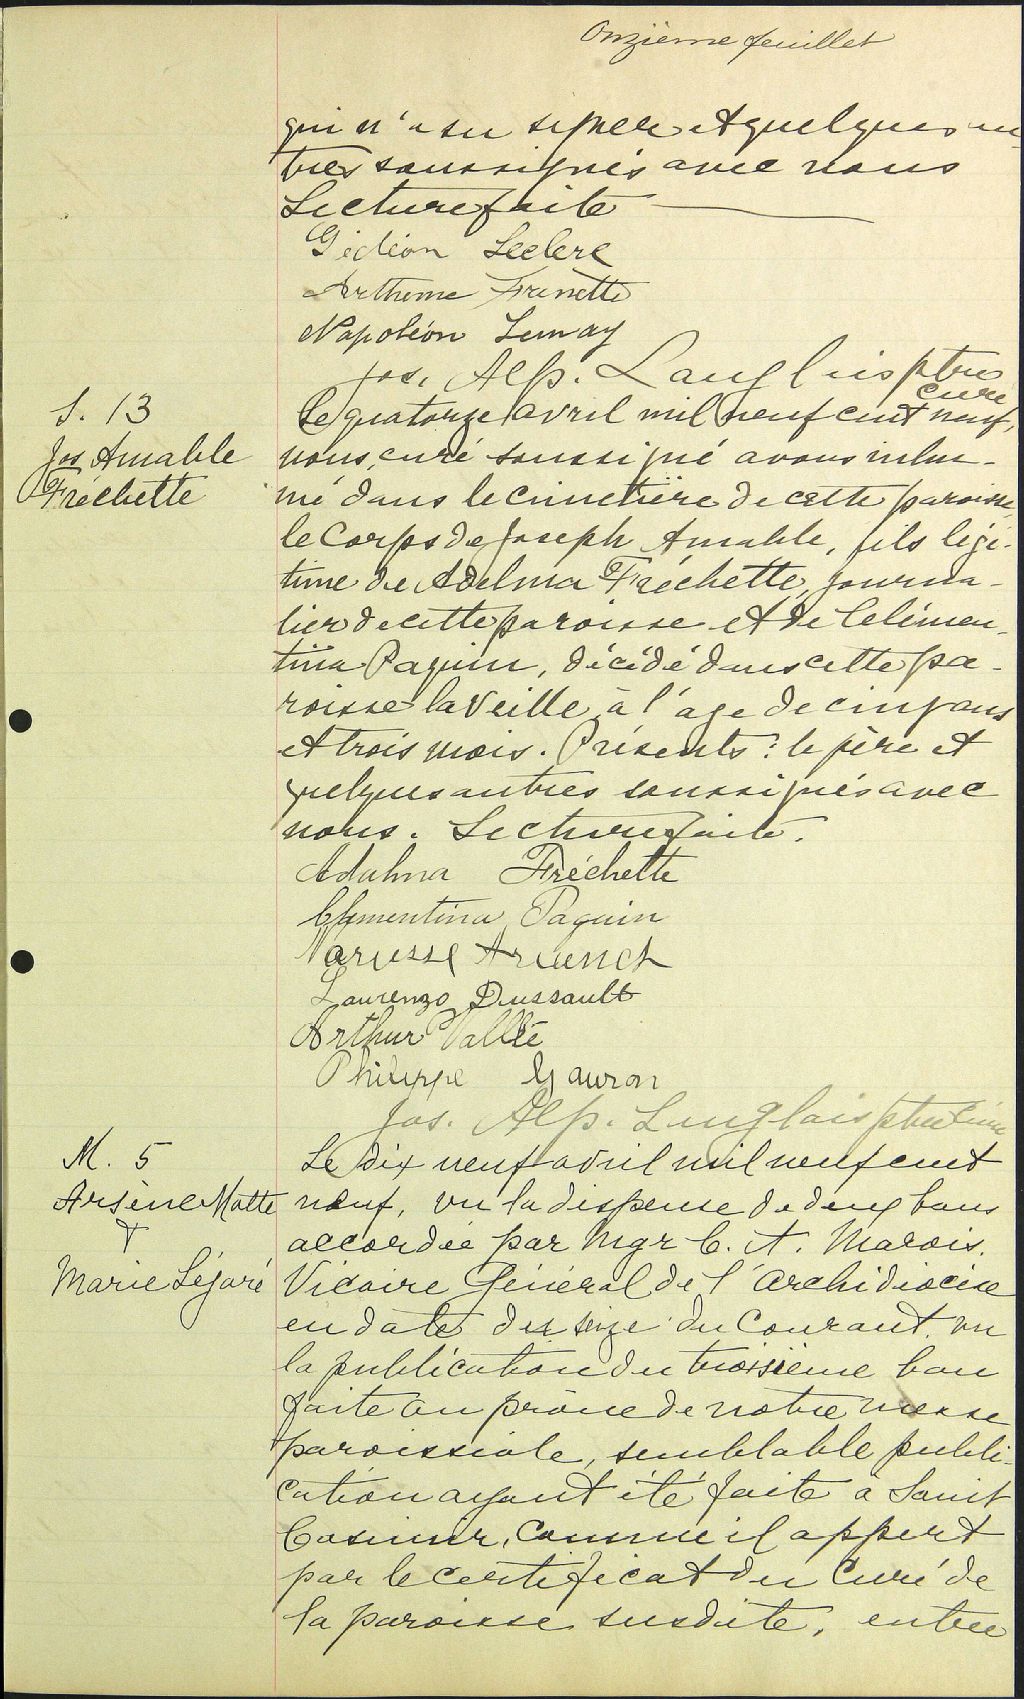 Onzième feuillet
qui n'a su signer et quelques au-
tres soussignés avec nous
Lecture faite
Gédéon Leclerc
Arthème Frenette
Napoléon Lemay
Jos. Alp. Langlois ptre
curé
S. 13
Jos Amable
Fréchette
Le quatorze avril mil neuf cent neuf,
nous, curé soussigné avons inhu-
mé dans le cimetière de cette paroisse,
le corps de Joseph Amable, fils légi-
time de Adelma Fréchette, journa-
lier de cette paroisse et de Célémen-
tina Paquin, décédé dans cette pa-
roisse la veille, à l'age de cinq ans
et trois mois. Présents: le père et
quelques autres soussignés avec
nous. Lecture faite.
Adalma Fréchette
Clémentina Paquin
Narcisse
Laurenzo Dussault
Arthur Vallée
Philippe Gauron
Jos. Alp. Langlois ptre curé
M. 5
Arsène Matte
&
Marie Légaré
Le dix neuf avril mil neuf cent
neuf, vu la dispense de deux bans
accordée par Mgr C. A. Marois.
Vicaire Général de l'archidiocèse
en date du seize du courant, vu
la publication du troisième ban
faite au prône de notre messe
paroissiale, semblable publi-
cation ayant été faite à Saint
Casimir, comme il appert
par le certificat du Curé de
la paroisse susdite, entre